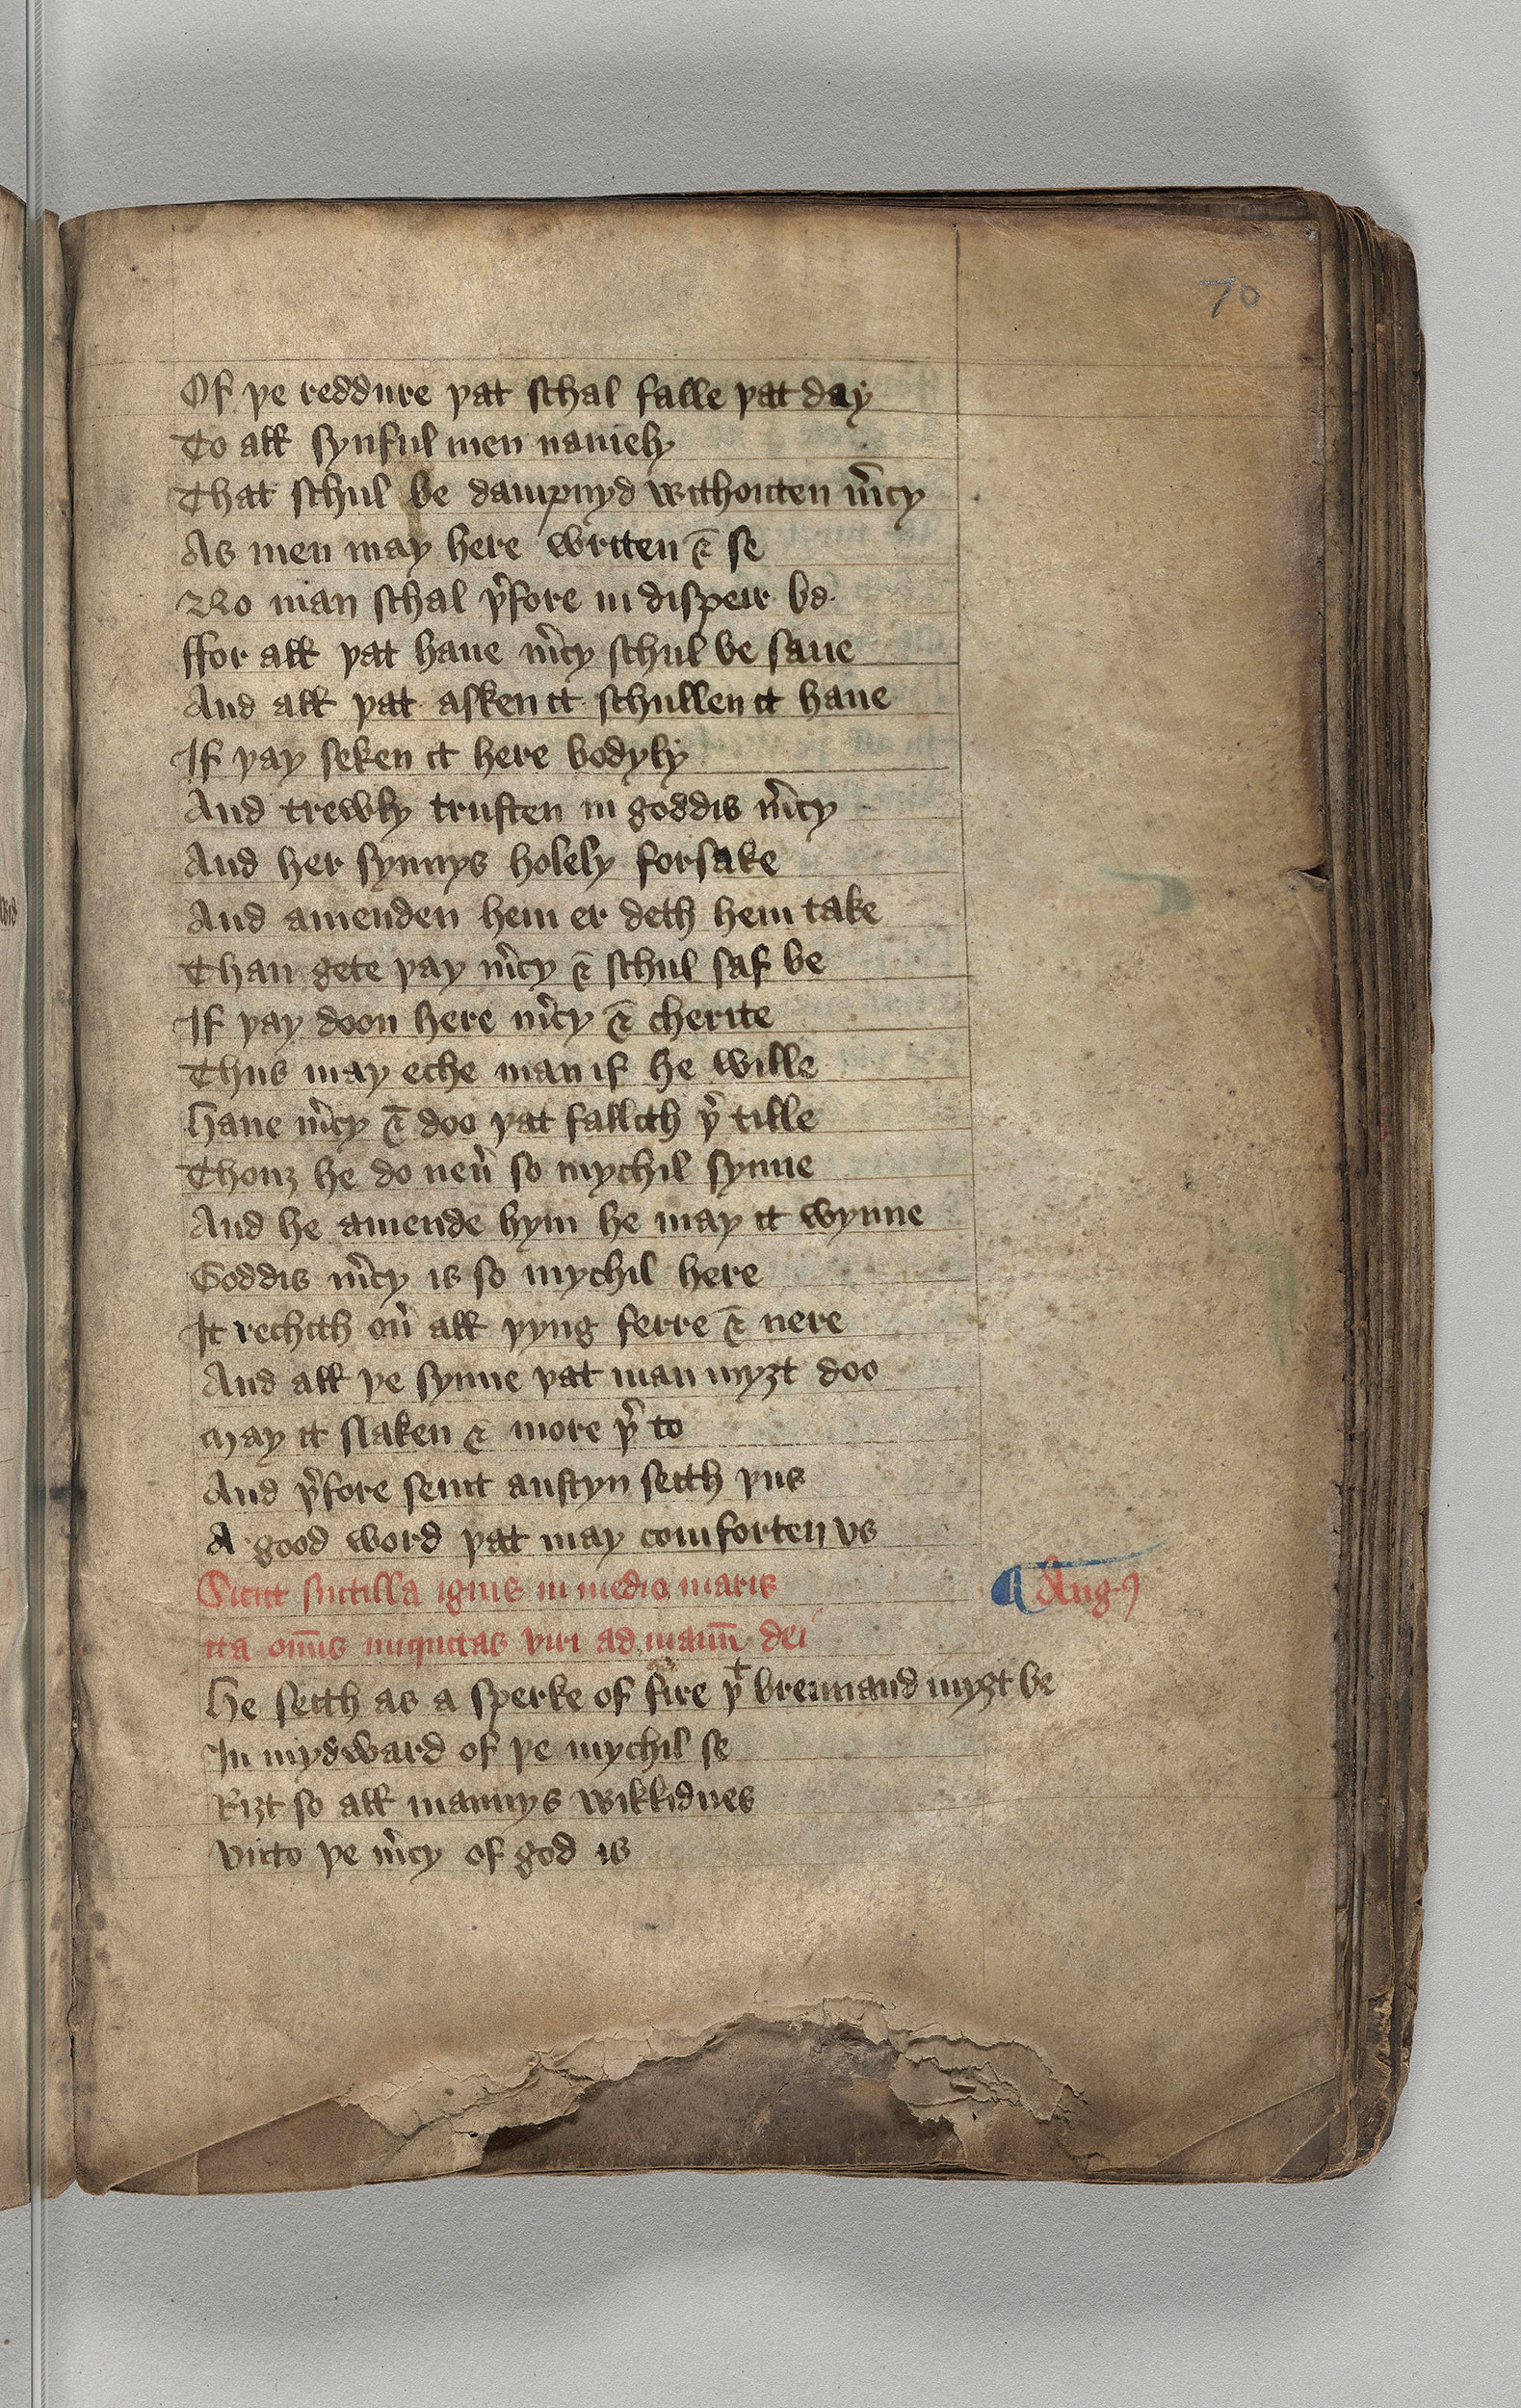 70
Of þe reddure þat schal falle þat day
To all synful men namely
That schul be dampnyd withouten m̉cy
As men may here writen & se
No man schal þ̉fore in dispeir be
ffor all þat haue m̉cy schul be saue
And all þat asken it schullen it haue
If þay seken it here bodyly
And trewly trusten in goddis m̉cy
And her synnys holely forsake
And amenden hem er deth hem take
Than gete þay m̉cy & schul saf be
If þay doon here m̉cy & cherite
Thus may eche man if he wille
Haue m̉cy & doo þat fallith þ̉ tille
Thouȝ he do neủ so mychil synne
And he amende hym he may it wynne
Goddis m̉cy is so mychil here
It rechith oủ all þyng ferre & nere
And all þe synne þat man myȝt doo
May it slaken & more þ̉ to
And þ̉fore seint austyn seith þus
A good word þat may comforten vs
Sicut sintilla ignis in medio maris
Aug⁹
ita om̄s iniquitas viri ad mam̄ dei
He seith as a sperke of fire þᵗ brennand myȝt be
In mydward of þe mychil se
Riȝt so all mannys wikkidnes
Vnto þe m̉cy of god is